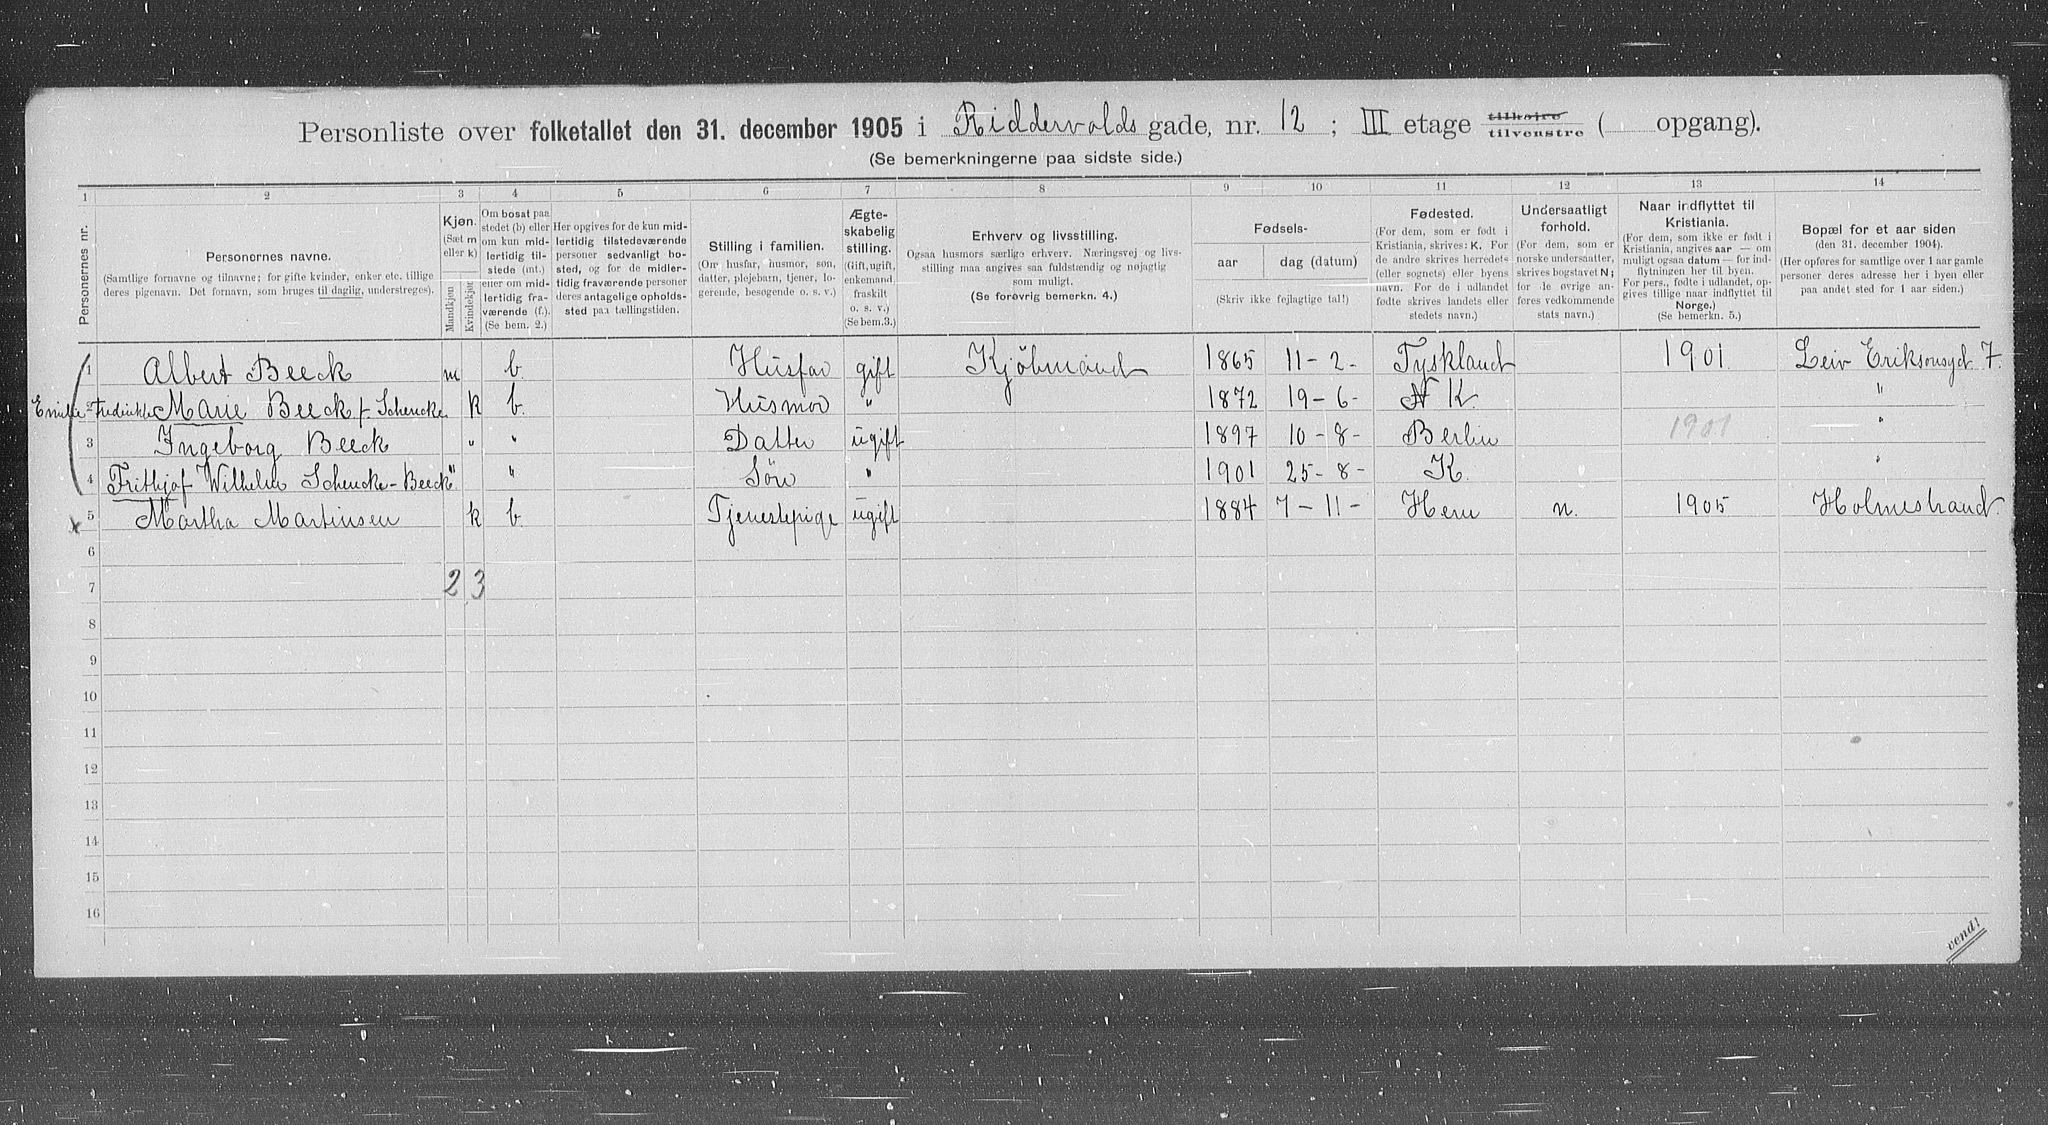 Personliste over folketallet den 31. december 1905 i Riddervolds gade, nr. 12 ; III etage tilhøire tilvenstre ( opgang).
(Se bemerkningerne paa sidste side.)
1 2 3 4 5 6 7 8 9 10 11 12 13 14
Personernes nr.
Personernes navne.
(Samtlige fornavne og tilnavne; for gifte kvinder, enker etc. tillige
deres pigenavn. Det fornavn, som bruges til daglig, understreges).
Kjøn.
(Sæt m
eller k)
Mandkjøn
Kvindekjøn
Om bosat paa
stedet (b) eller
om kun mid-
lertidig til-
stede (mt.)
eller om mid-
lertidig fra-
værende (f.).
(Se bem. 2.)
Her opgives for de kun mid-
lertidig tilstedeværende
personer sedvanligt bo-
sted, og for de midler-
tidig fraværende personer
deres antagelige opholds-
sted paa tællingstiden.
Stilling i familien.
(Om husfar, husmor, søn,
datter, plejebarn, tjener, lo-
gerende, besøgende o. s. v.)
Ægte-
skabelig
stilling.
(Gift, ugift,
enkemand,
fraskilt
o. s. v.)
(Se bem.3.)
Erhverv og livsstilling.
Ogsaa husmors særlige erhverv. Næringsvej og livs-
stilling maa angives saa fuldstændig og nøjagtig
som muligt.
(Se forøvrig bemerkn. 4.)
Fødsels-
aar dag (datum)
(Skriv ikke fejlagtige tal!)
Fødested.
(For dem, som er født i
Kristiania, skrives: K. For
de andre skrives herredets
(eller sognets) eller byens
navn. For de i udlandet
fødte skrives landets eller
stedets navn.)
Undersaatligt
forhold.
(For dem, som er
norske undersaatter,
skrives bogstavet N;
for de øvrige an-
føres vedkommende
stats navn.)
Naar indflyttet til
Kristiania.
(For dem, som ikke er født i
Kristiania, angives aar — om
muligt ogsaa datum — for ind-
flytningen her til byen.
For pers., fødte i udlandet, op-
gives tillige naar indflyttet til
Norge.)
(Se bemerkn. 5.)
Bopæl for et aar siden
(den 31. december 1904).
(Her opføres for samtlige over 1 aar gamle
personer deres adresse her i byen eller
paa andet sted for 1 aar siden.)
1 Albert Beeck m b. Husfar gift Kjøbmand 1865 11-2- Tyskland 1901 Leiv Eriksonsgd 7.
2 Emilie Fredrikke Marie Beeck f. Schencke k b. Husmor " 1872 19-6- K. "
3 Ingeborg Beeck " " Datter ugift 1897 10-8- Berlin 1901 "
4 Frithjof Wilhelm Schencke-Beeck " " Sön " 1901 25-8- K. "
x 5 Martha Martinsen k b. Tjenestepige ugift 1884 7-11- Hem n. 1905 Holmestrand.
6
7 2 3
8
9
10
11
12
13
14
15
16
vend!